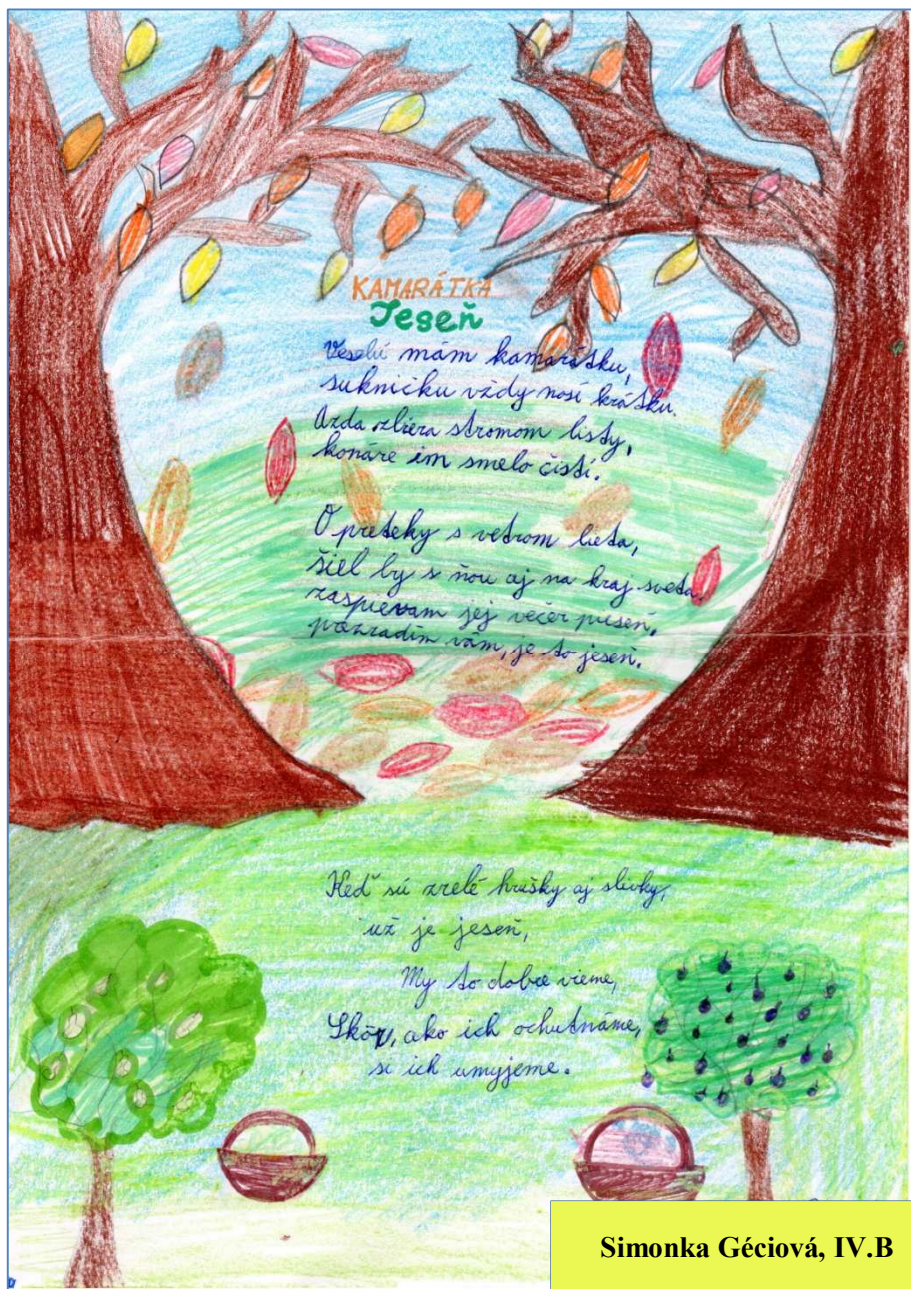 KAMARÁTKA
Jeseň
Veselú mám kamarátku,
sukničku vždy nosí krátku.
Azda zbiera stromom listy,
konáre im smelo čistí.
O preteky s vetrom lieta,
šiel by s ňou aj na kraj sveta,
zaspievam jej večer pieseň,
prezradím vám, je to jeseň.
Keď sú zrelé hrušky aj slivky,
už je jeseň,
My to dobre vieme,
Skôr, ako ich ochutnáme,
si ich umyjeme.
Simonka Géciová, IV.B